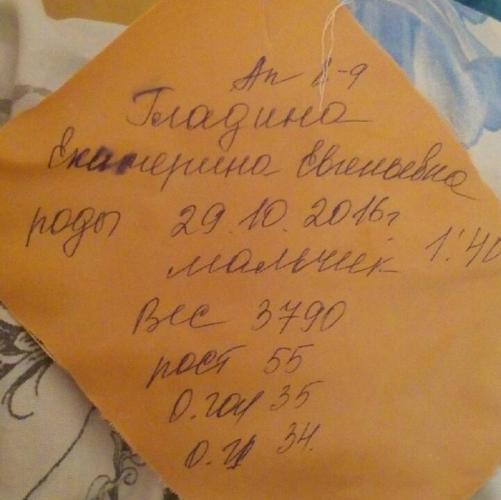 Ап 8-9
Гладина
Екатерина Евгеньевна
роды 29.10.2016г
мальчик 1:40
Вес 3790
рост 55
О.гол 35
О.г 34.